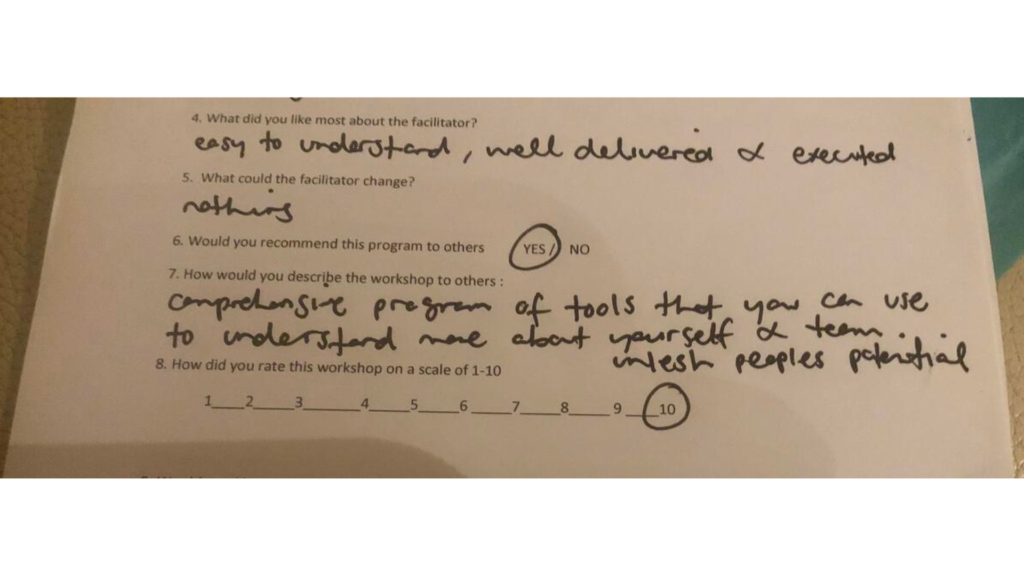 4. What did you like most about the facilitator?
easy to understand, well delivered & executed
5. What could the facilitator change?
nothing
6. Would you recommend this program to others YES / NO
7. How would you describe the workshop to others :
comprehensive program of tools that you can use
to understand more about yourself & team.
unlesh peoples potential
8. How did you rate this workshop on a scale of 1-10
1___2____3______4____5____6____7____8____9___10